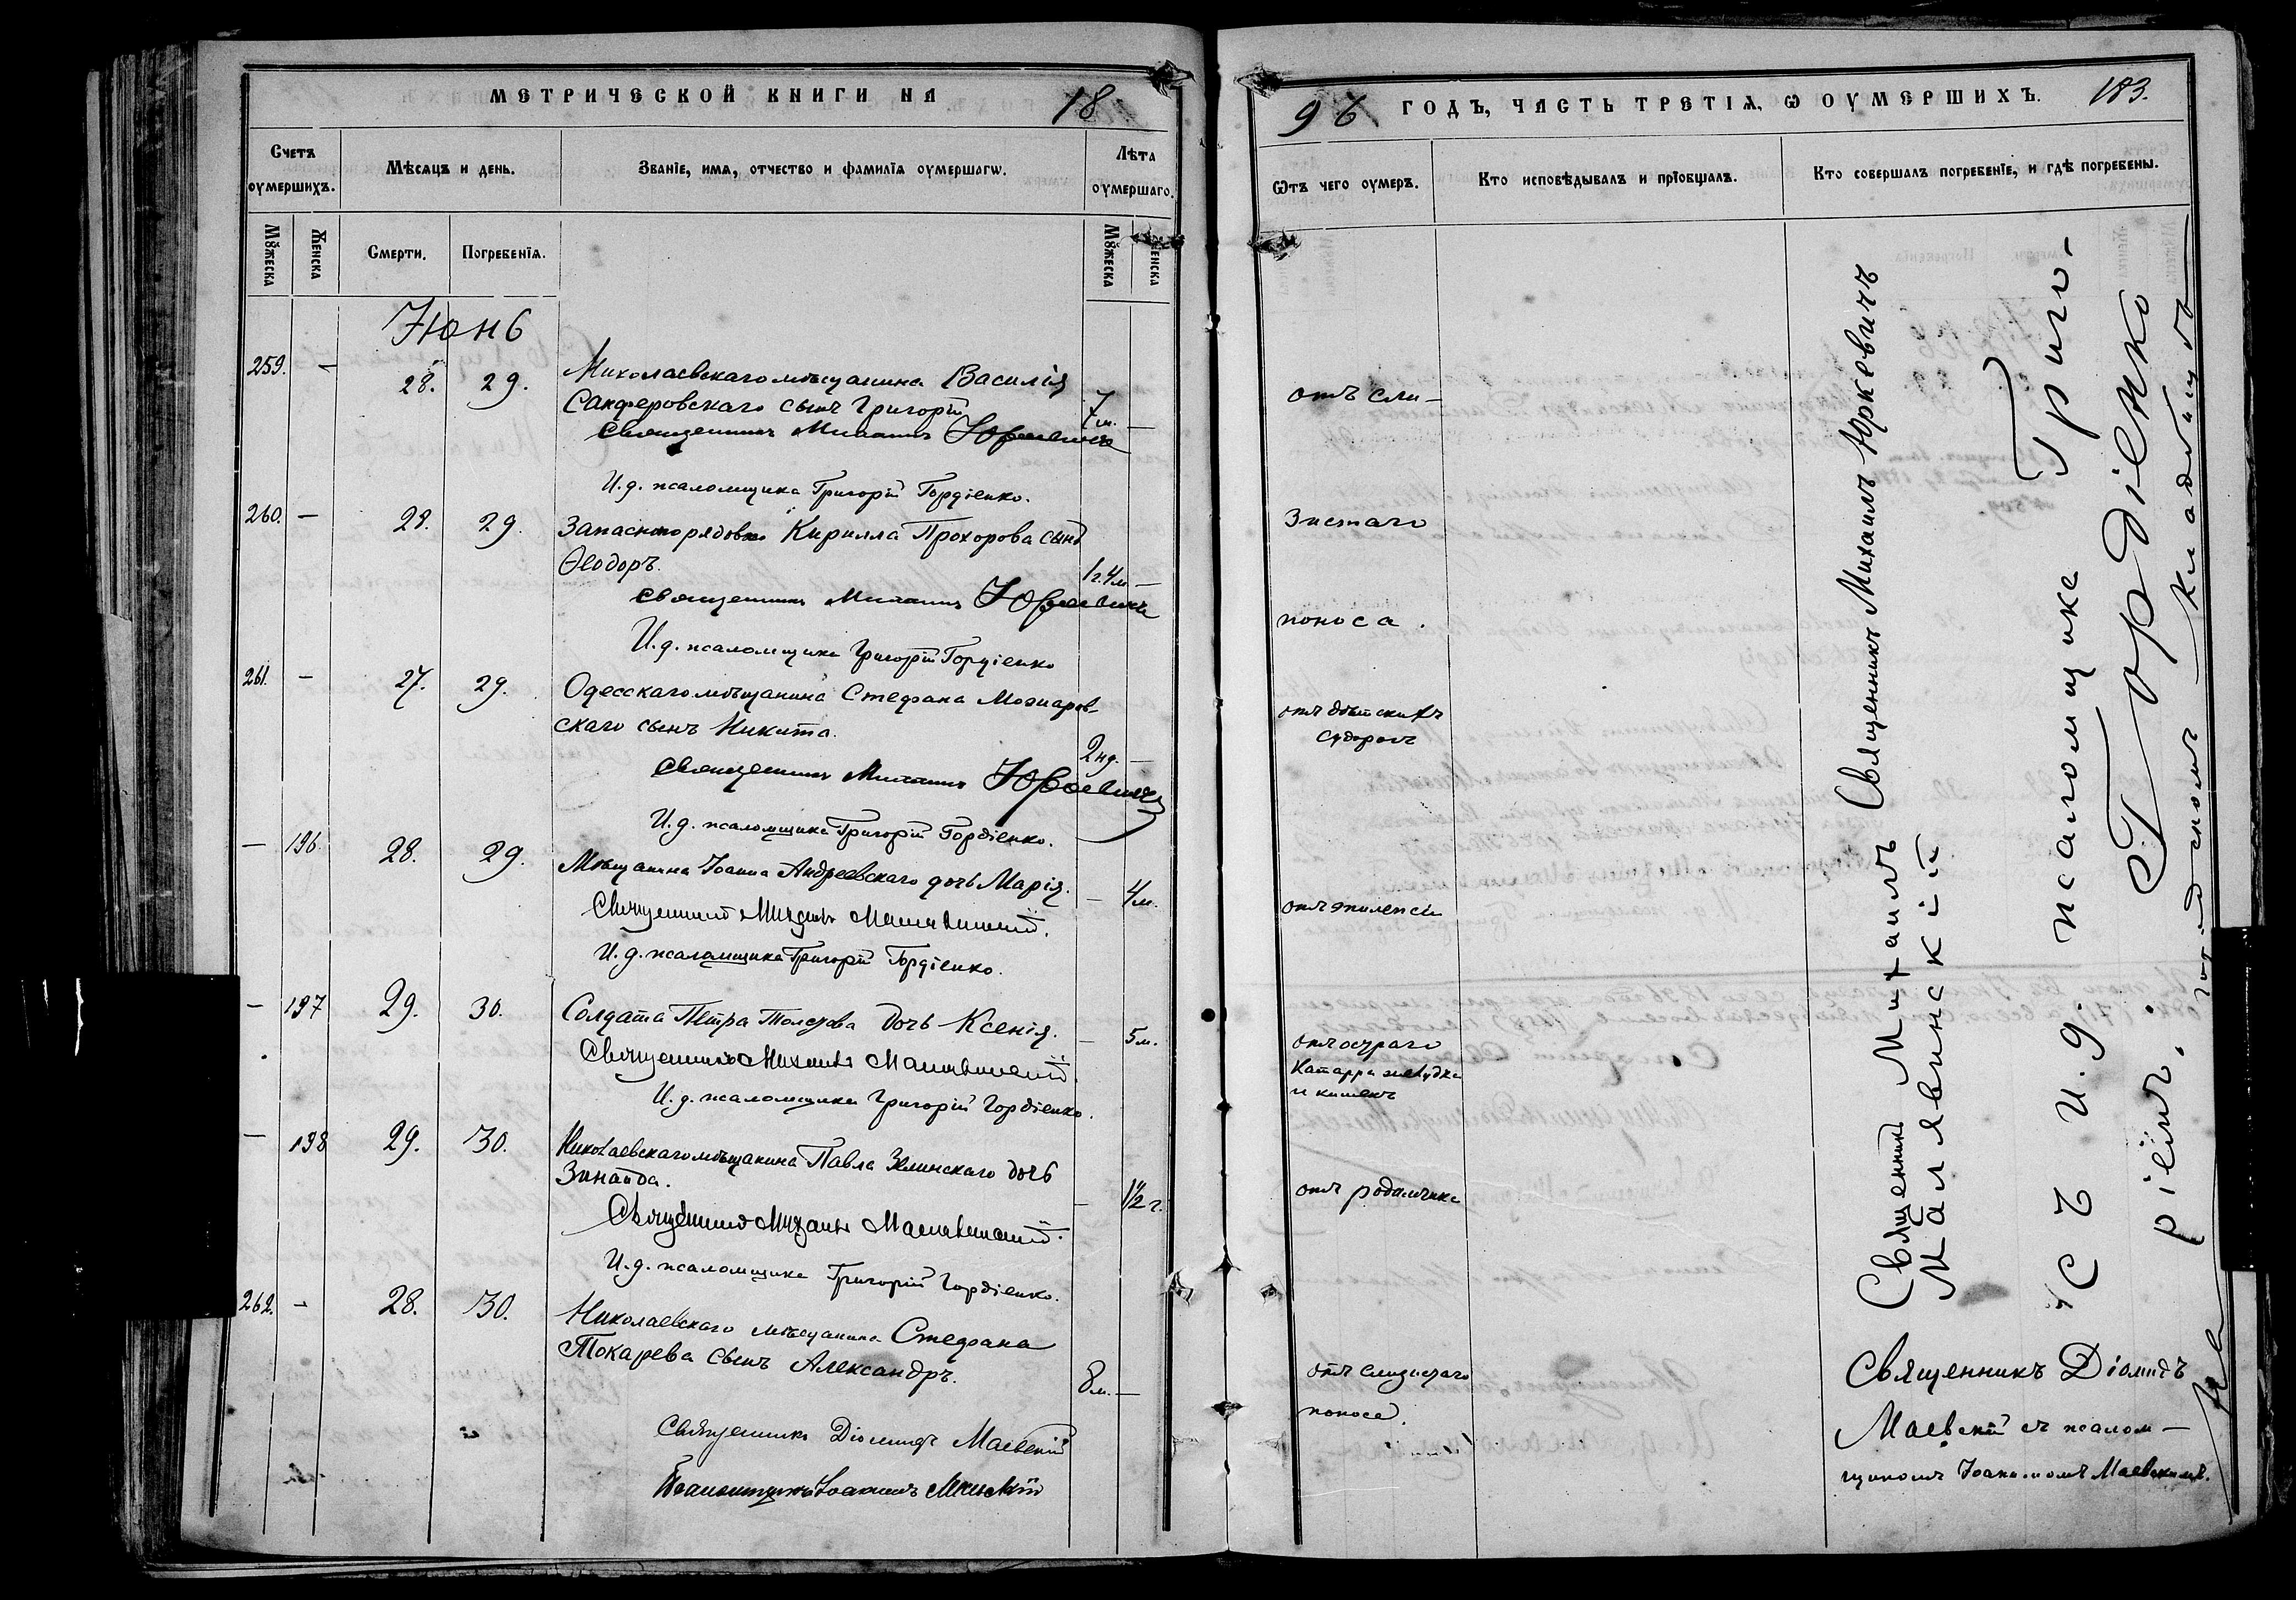 МЕТРИЧЕСКОЙ КНИГИ НА 18
Счетъ оумершихъ.
Мѣсяцъ и день.
Званїе, имя, отчество и фамилїа оумершагѡ.
Лѣта оумершаго.
Мꙋжеска
Женска
Смерти.
Погребенїя.
Мꙋжеска
Женска
Іюнь
259. — 28. 29. Николаевскаго мѣщанина Василія
Санферовскаго сынъ Григорій 7 м. —
Священникъ Михаилъ Юркевичъ
И. д. псаломщика Григорій Гордіенко.
260. — 28. 29. Запасного рядового Кирилла Прохорова сынъ
Ѳеодоръ. 1 г. 4 м. —
Священникъ Михаилъ Юркевичъ
И. д. псаломщика Григорій Гордіенко
261. — 27. 29. Одесскаго мѣщанина Стефана Мознаров-
скаго сынъ Никита. 2 нд. —
Священникъ Михаилъ Юркевичъ
И. д. псаломщика Григорій Гордіенко.
— 196. 28. 29. Мѣщанина Іоанна Андреевскаго дочь Марія. — 4 м.
Священникъ Михаилъ Малявинскій.
И. д. псаломщика Григорій Гордіенко.
— 197 29. 30. Солдата Петра дочь Ксенія. — 5 м.
Священникъ Михаилъ Малявинскій.
И. д. псаломщика Григорій Гордіенко.
— 198 29. 30. Николаевскаго мѣщанина Павла дочь
Зинаида. — 1½ г.
Священникъ Михаилъ Малявинскій.
И. д. псаломщика Григорій Гордіенко.
262. — 28. 30. Николаевскаго мѣщанина Стефана
Токарева сынъ Александръ. 8 м. —
Священникъ Діомидъ Маевскій
Псаломщикъ Іоакимъ Маевскій
96 ГОДЪ, ЧАСТЬ ТРЕТІЯ, Ѡ ОУМЕРШИХЪ. 183.
Ѿтъ чего оумеръ.
Кто исповѣдывалъ и прїобщалъ.
Кто совершалъ погребенїе, и гдѣ погребены.
отъ сли-
зистаго
поноса.
отъ дѣтскихъ
судорогъ
отъ эпилепсіи
отъ остраго
катарра желудка
и кишекъ
отъ родимчика
отъ слизистаго
поноса.
Священникъ Михаилъ Юркевичъ
Священникъ Михаилъ
Малявинскій
съ и. д. псаломщика Григо-
ріемъ Гордіенко
городскомъ кладбищѣ
Священникъ Діомидъ
Маевскій съ псалом-
щикомъ Іоакимомъ Маевскимъ.